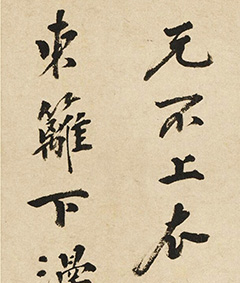 元不上衣
東籬下